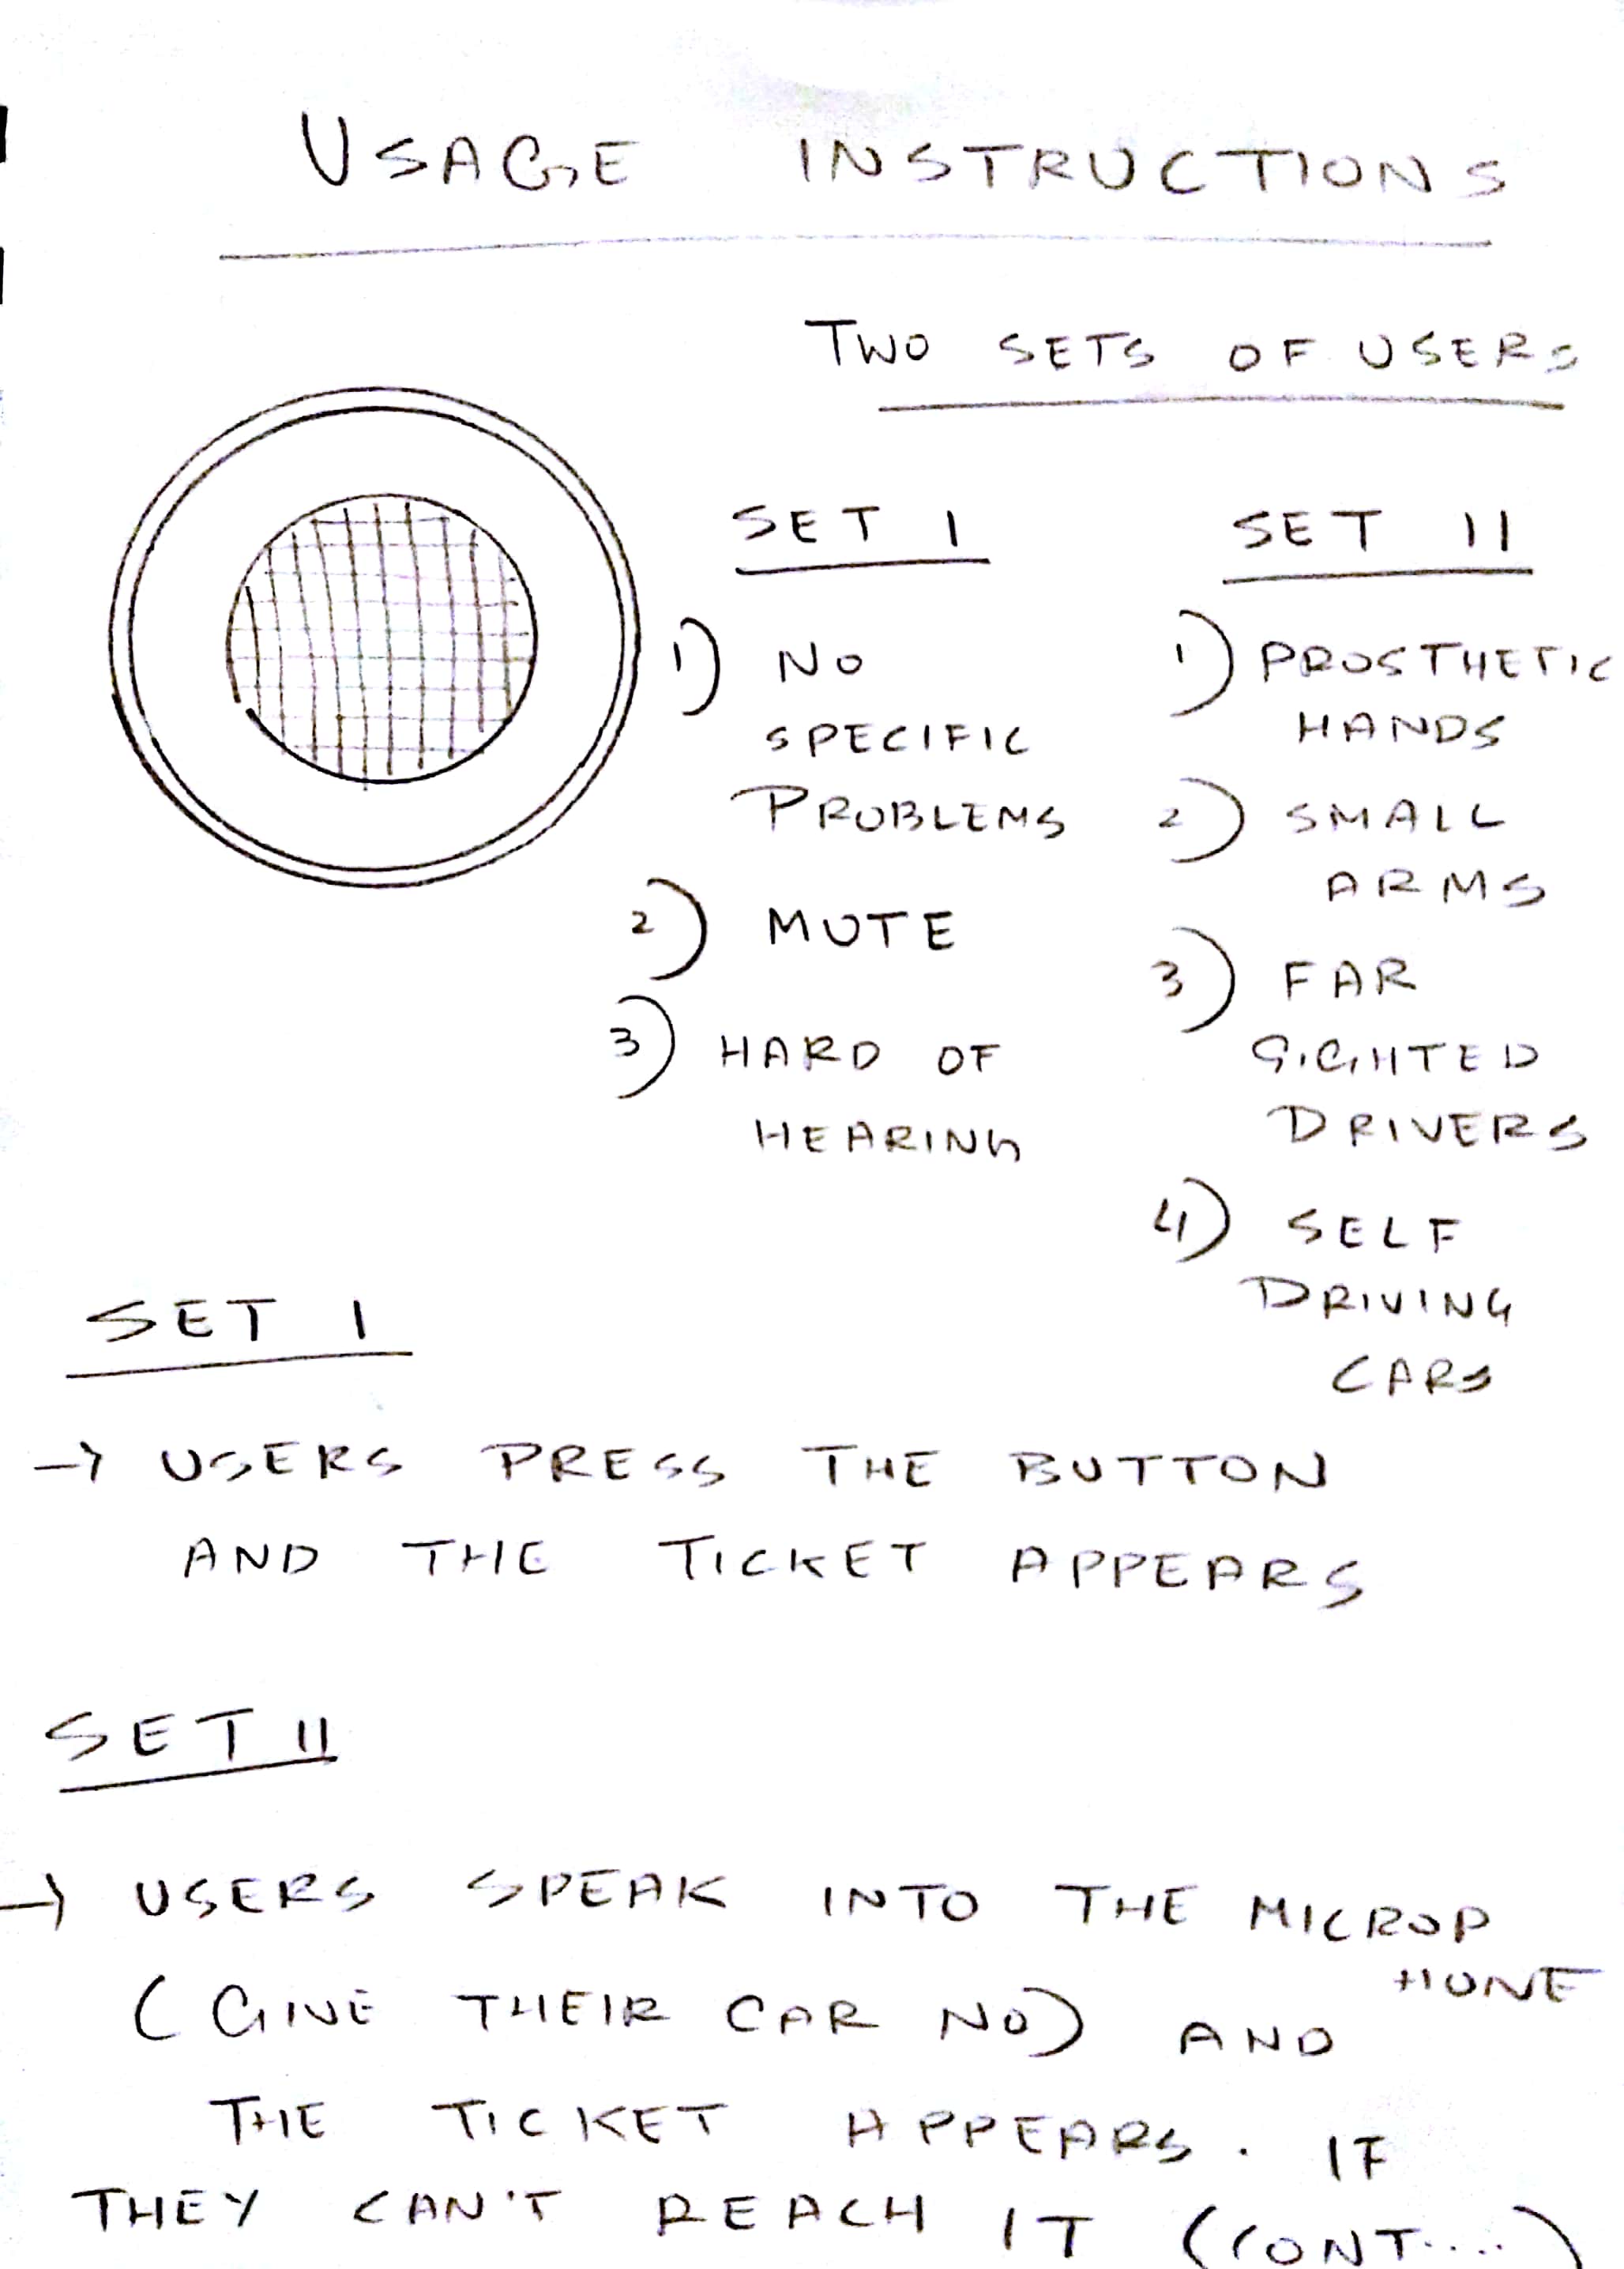 USAGE INSTRUCTIONS
TWO SETS OF USERS
SET I
1) NO
SPECIFIC
PROBLEMS
2) MUTE
3) HARD OF
HEARING
SET II
1) PROSTHETIC
HANDS
2) SMALL
ARMS
3) FAR
SIGHTED
DRIVERS
4) SELF
DRIVING
CARS
SET I
→ USERS PRESS THE BUTTON
AND THE TICKET APPEARS
SET II
→ USERS SPEAK INTO THE MICROP
HONE
(GIVE THEIR CAR NO) AND
THE TICKET APPEARS. IF
THEY CAN'T REACH IT (CONT.....)